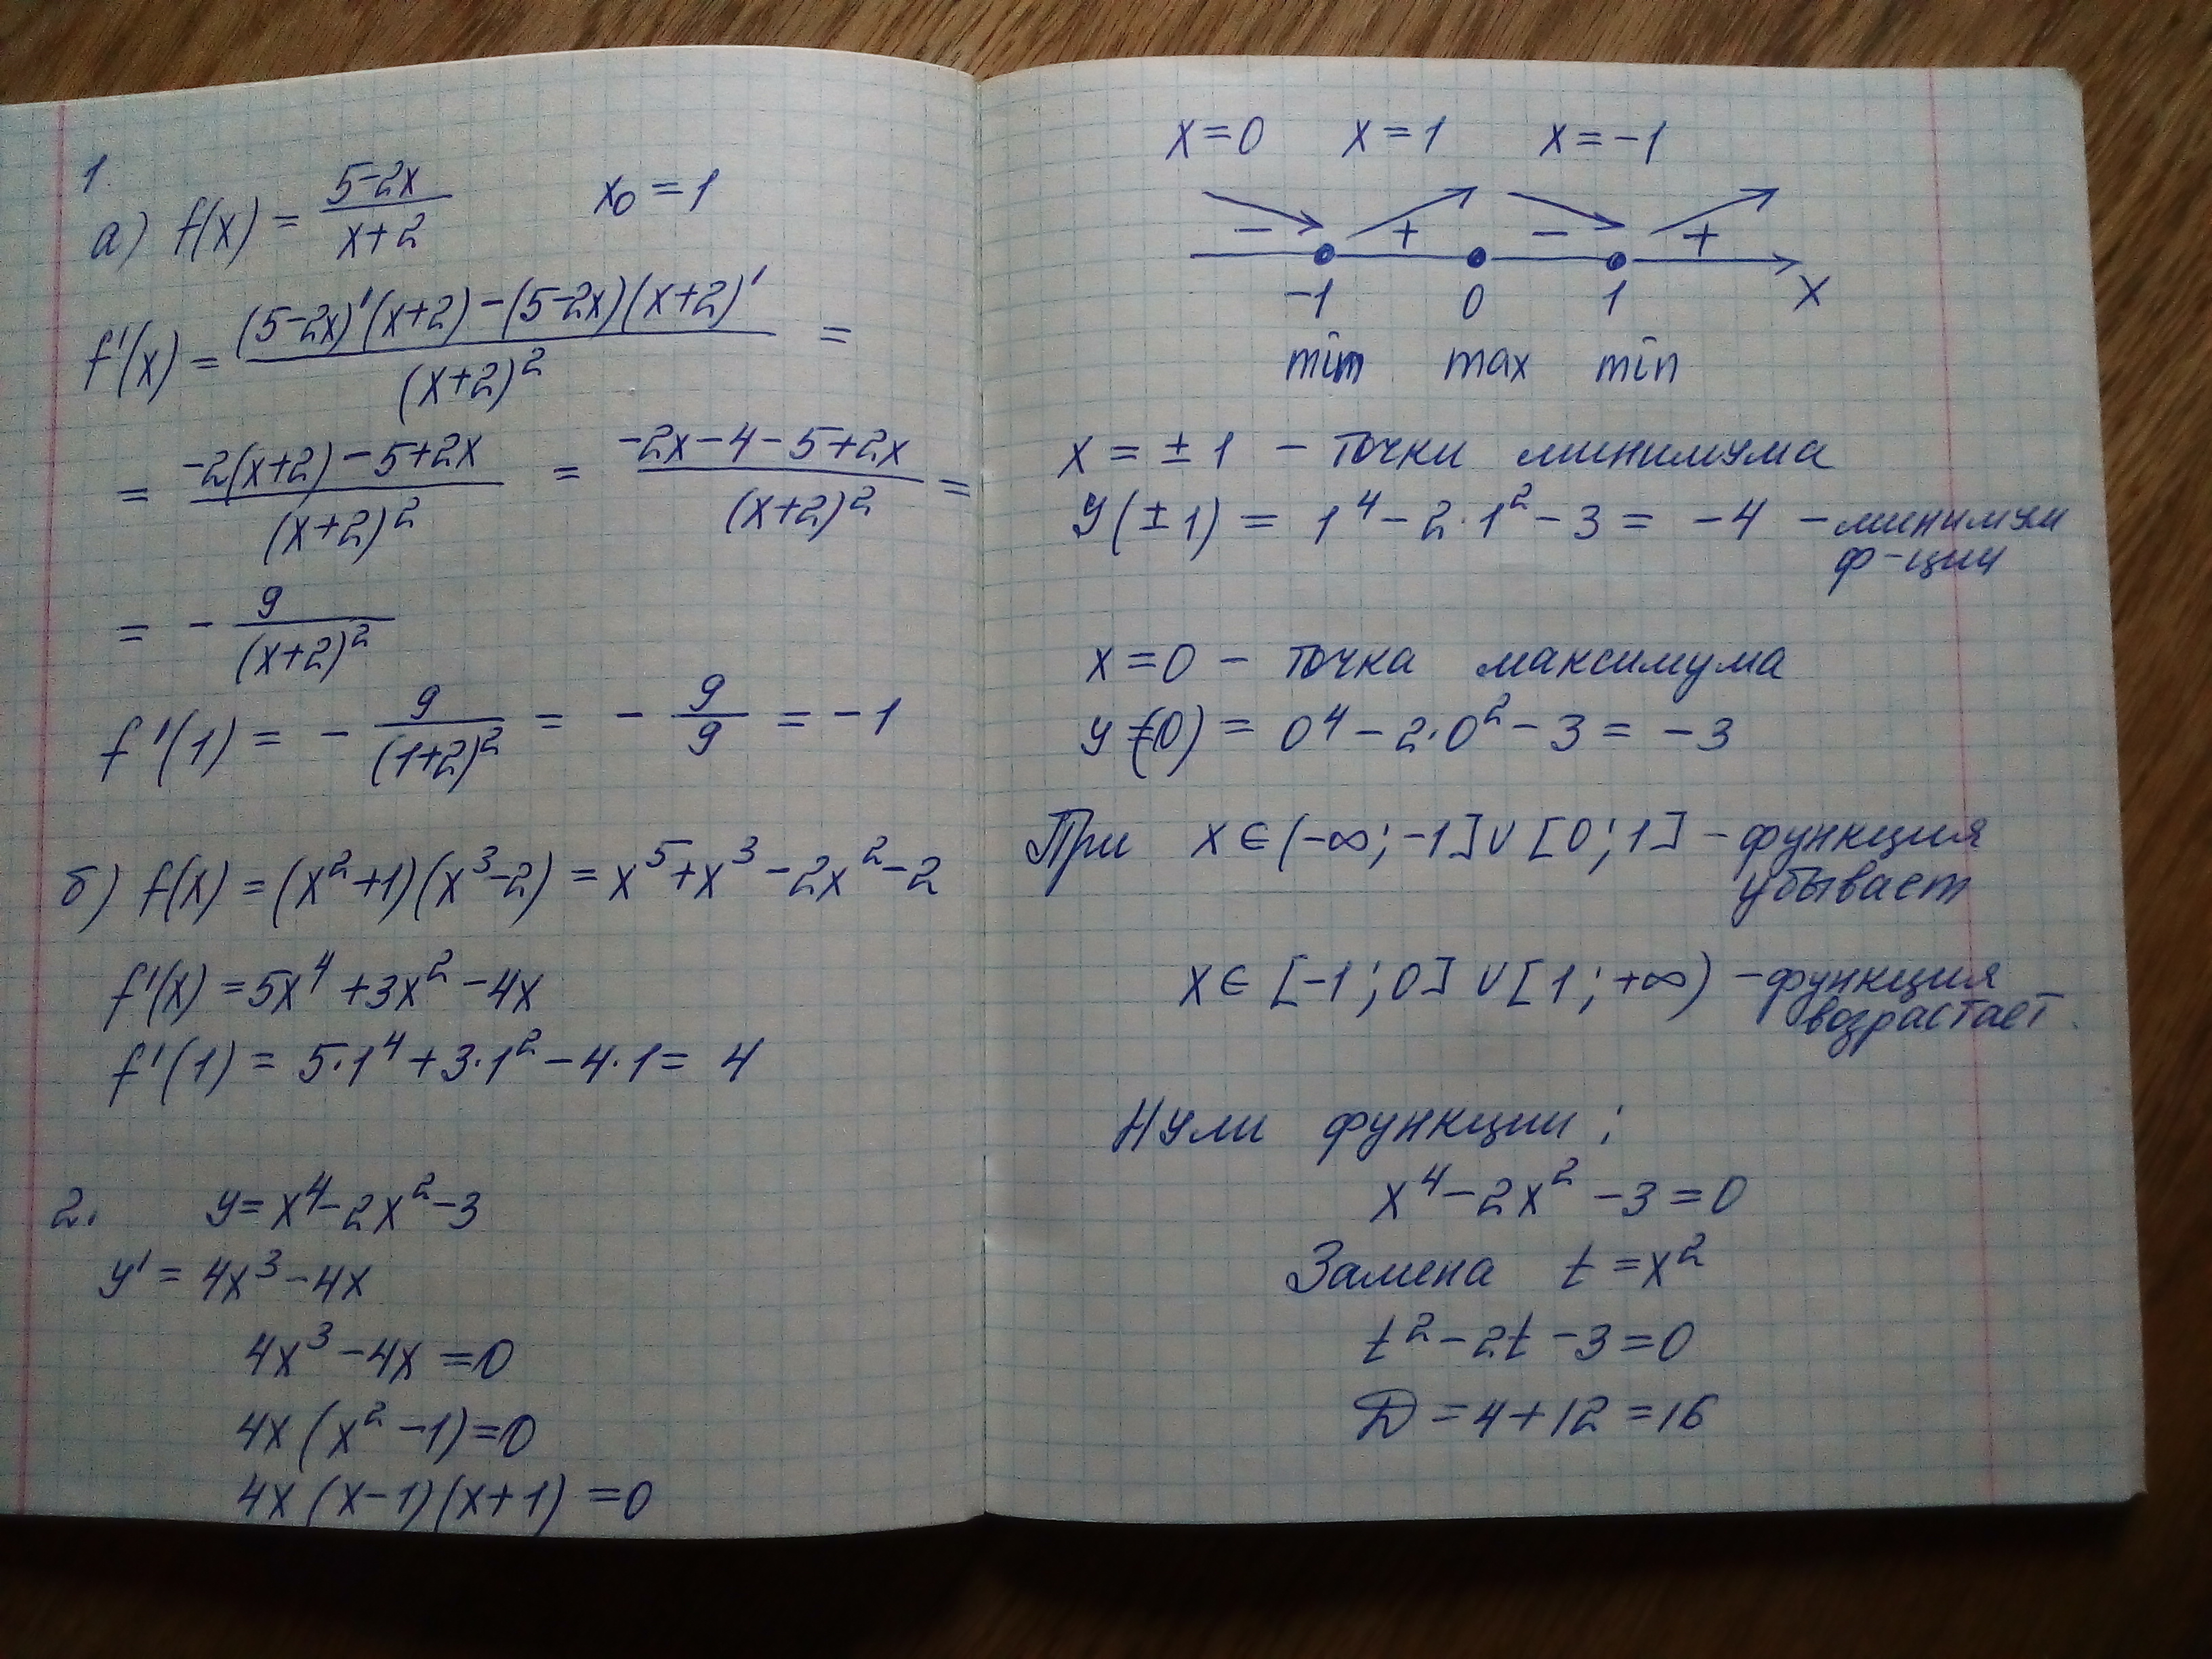 1.
а) f(x) = (5-2x)/(x+2)   x₀ = 1
f'(x) = ((5-2x)'(x+2)-(5-2x)(x+2)')/(x+2)² =
= (-2(x+2)-5+2x)/(x+2)² = (-2x-4-5+2x)/(x+2)² =
= - 9/(x+2)²
f'(1) = - 9/(1+2)² = - 9/9 = -1
б) f(x) = (x²+1)(x³-2) = x⁵+x³-2x²-2
f'(x) = 5x⁴+3x²-4x
f'(1) = 5·1⁴+3·1²-4·1 = 4
2. y=x⁴-2x²-3
y' = 4x³-4x
4x³-4x=0
4x(x²-1)=0
4x(x-1)(x+1)=0
x=0 x=1 x=-1
- + - +
-1 0 1 x
min max min
x = ±1 - точки минимума
y(±1) = 1⁴-2·1²-3 = -4 - минимум
ф-ции
x=0 - точка максимума
y(0) = 0⁴-2·0²-3 = -3
При x∈(-∞;-1]∪[0;1] - функция
убывает
x∈[-1;0]∪[1;+∞) - функция
возрастает.
Нули функции:
x⁴-2x²-3=0
Замена t=x²
t²-2t-3=0
D=4+12=16